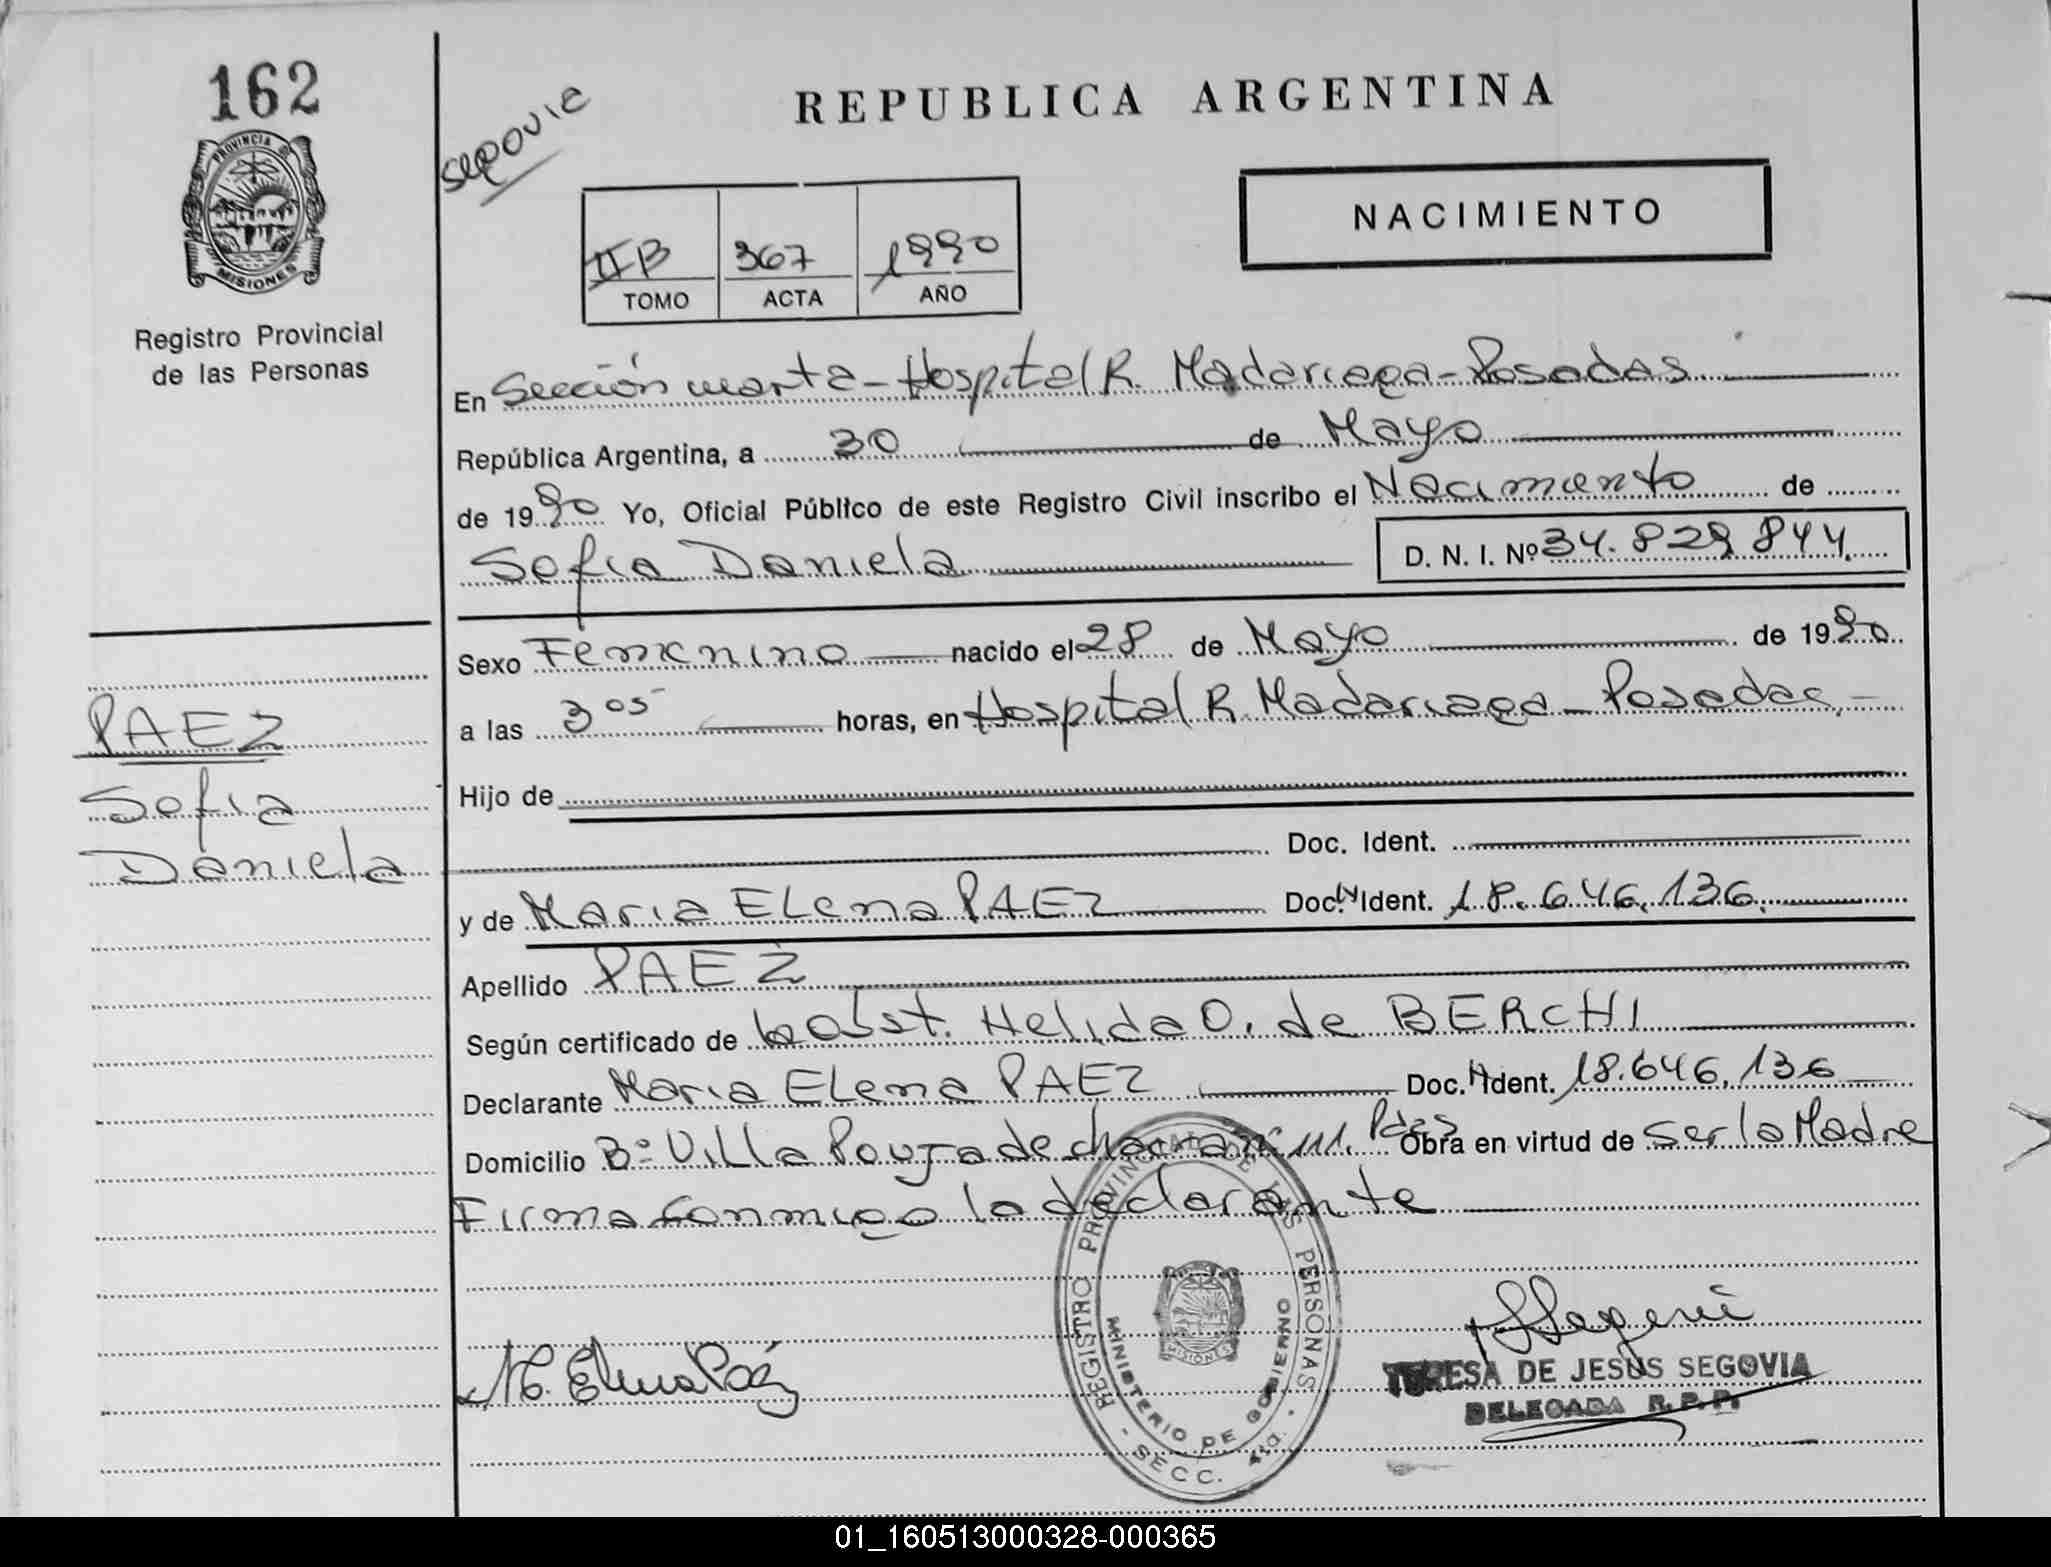 162
PROVINCIA DE
MISIONES
Registro Provincial
de las Personas
Segovia
REPUBLICA ARGENTINA
NACIMIENTO
IIB 367 1990
TOMO ACTA AÑO
En Sección cuarta - Hospital R. Madariaga - Posadas
República Argentina, a 30 de Mayo
de 1990 Yo, Oficial Público de este Registro Civil inscribo el Nacimiento de
Sofia Daniela D. N. I. Nº 34.829.844.
Sexo Femenino nacido el 28 de Mayo de 1990
a las 3 05 horas, en Hospital R. Madariaga - Posadas.-
Hijo de
Doc. Ident.
y de Maria Elena PAEZ Doc. Ident. 18.646.136.
Apellido PAEZ
Según certificado de la Obst. Helida O. de BERCHI
Declarante Maria Elena PAEZ Doc. Ident. 18.646.136
Domicilio Bº Villa Pdas Obra en virtud de ser la Madre
Firma conmigo la declarante
PAEZ
Sofia
Daniela
M. Elena Paéz
REGISTRO PROVINCIAL DE LAS PERSONAS
MINISTERIO DE GOBIERNO
MISIONES
- SECC. 4ta. -
TERESA DE JESUS SEGOVIA
DELEGADA R. P. P.
01_160513000328-000365